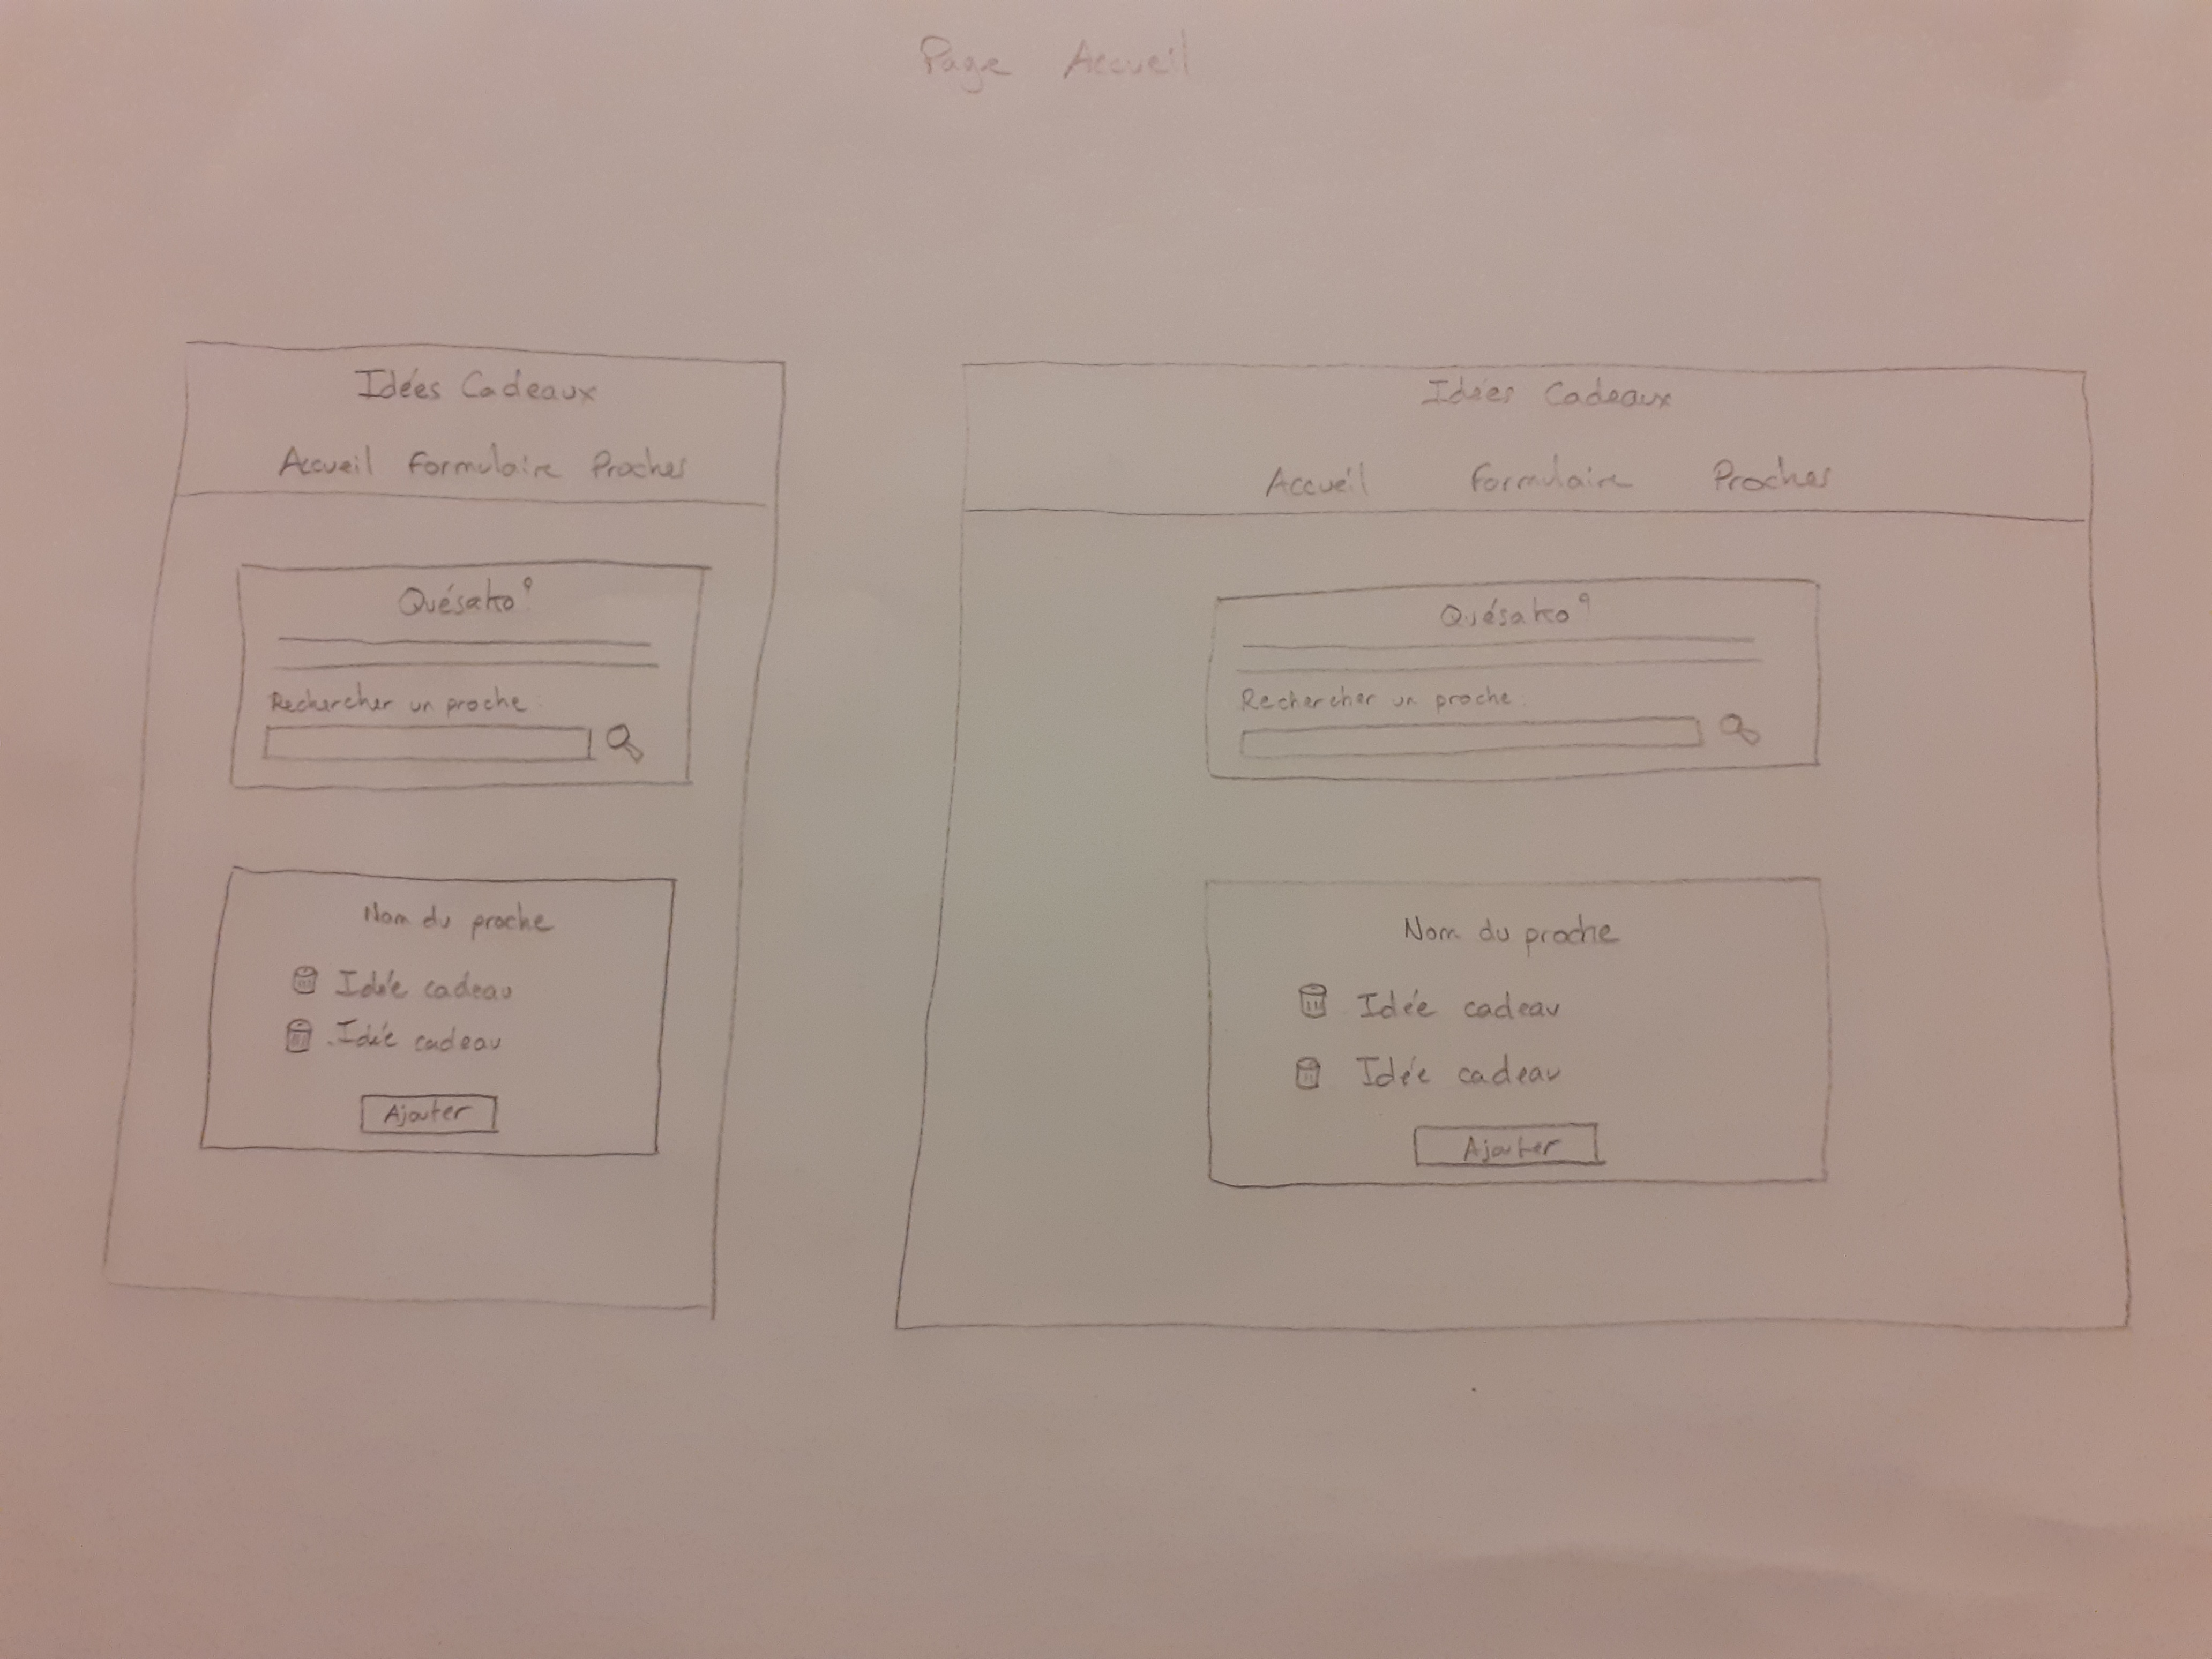 Page Accueil
Idées Cadeaux
Accueil Formulaire Proches
Quésako?
Rechercher un proche :
Nom du proche
Idée cadeau
Idée cadeau
Ajouter
Idées Cadeaux
Accueil Formulaire Proches
Quésako?
Rechercher un proche :
Nom du proche
Idée cadeau
Idée cadeau
Ajouter